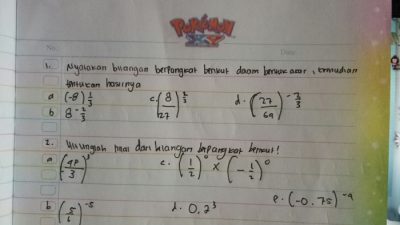 POKÉMON
XY
No.
Date
1. Nyatakan bilangan berpangkat berikut dalam bentuk akar, kemudian
tentukan hasilnya
a (-8)^1/3 c. (8/27)^2/3 d. (27/64)^-2/3
b 8^-2/3
2. Hitunglah nilai dari bilangan berpangkat berikut!
a (4p/3)^3 c. (1/2)^0 × (-1/2)^0
b (5/6)^-5 d. 0,2^3 e. (-0.75)^-4